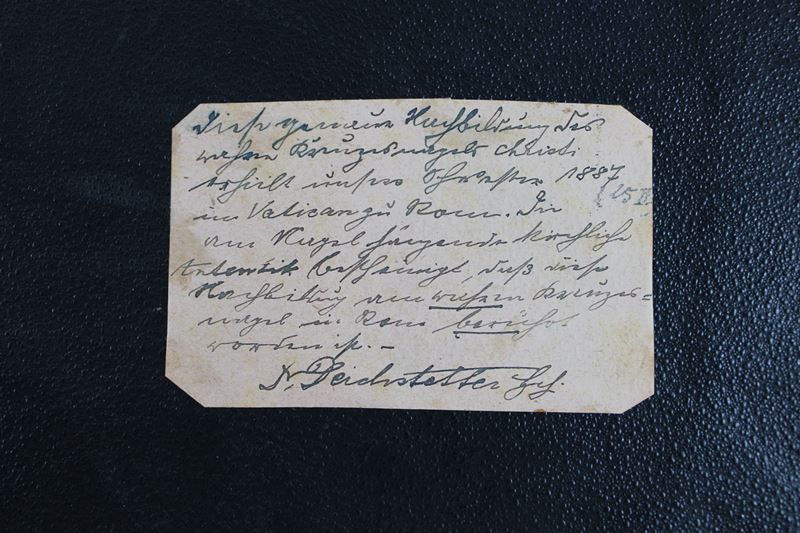 Diese genaue Nachbildung des
wahren Kreuzesnagels Christi
erhielt unsere Schwester 1887
(25
im Vatican zu Rom. Die
am Nagel hängende kirchliche
Autentik bescheinigt, daß diese
Nachbildung am wahren Kreuzes=
nagel in Rom berührt
worden ist. –
Dr. Deichstetter